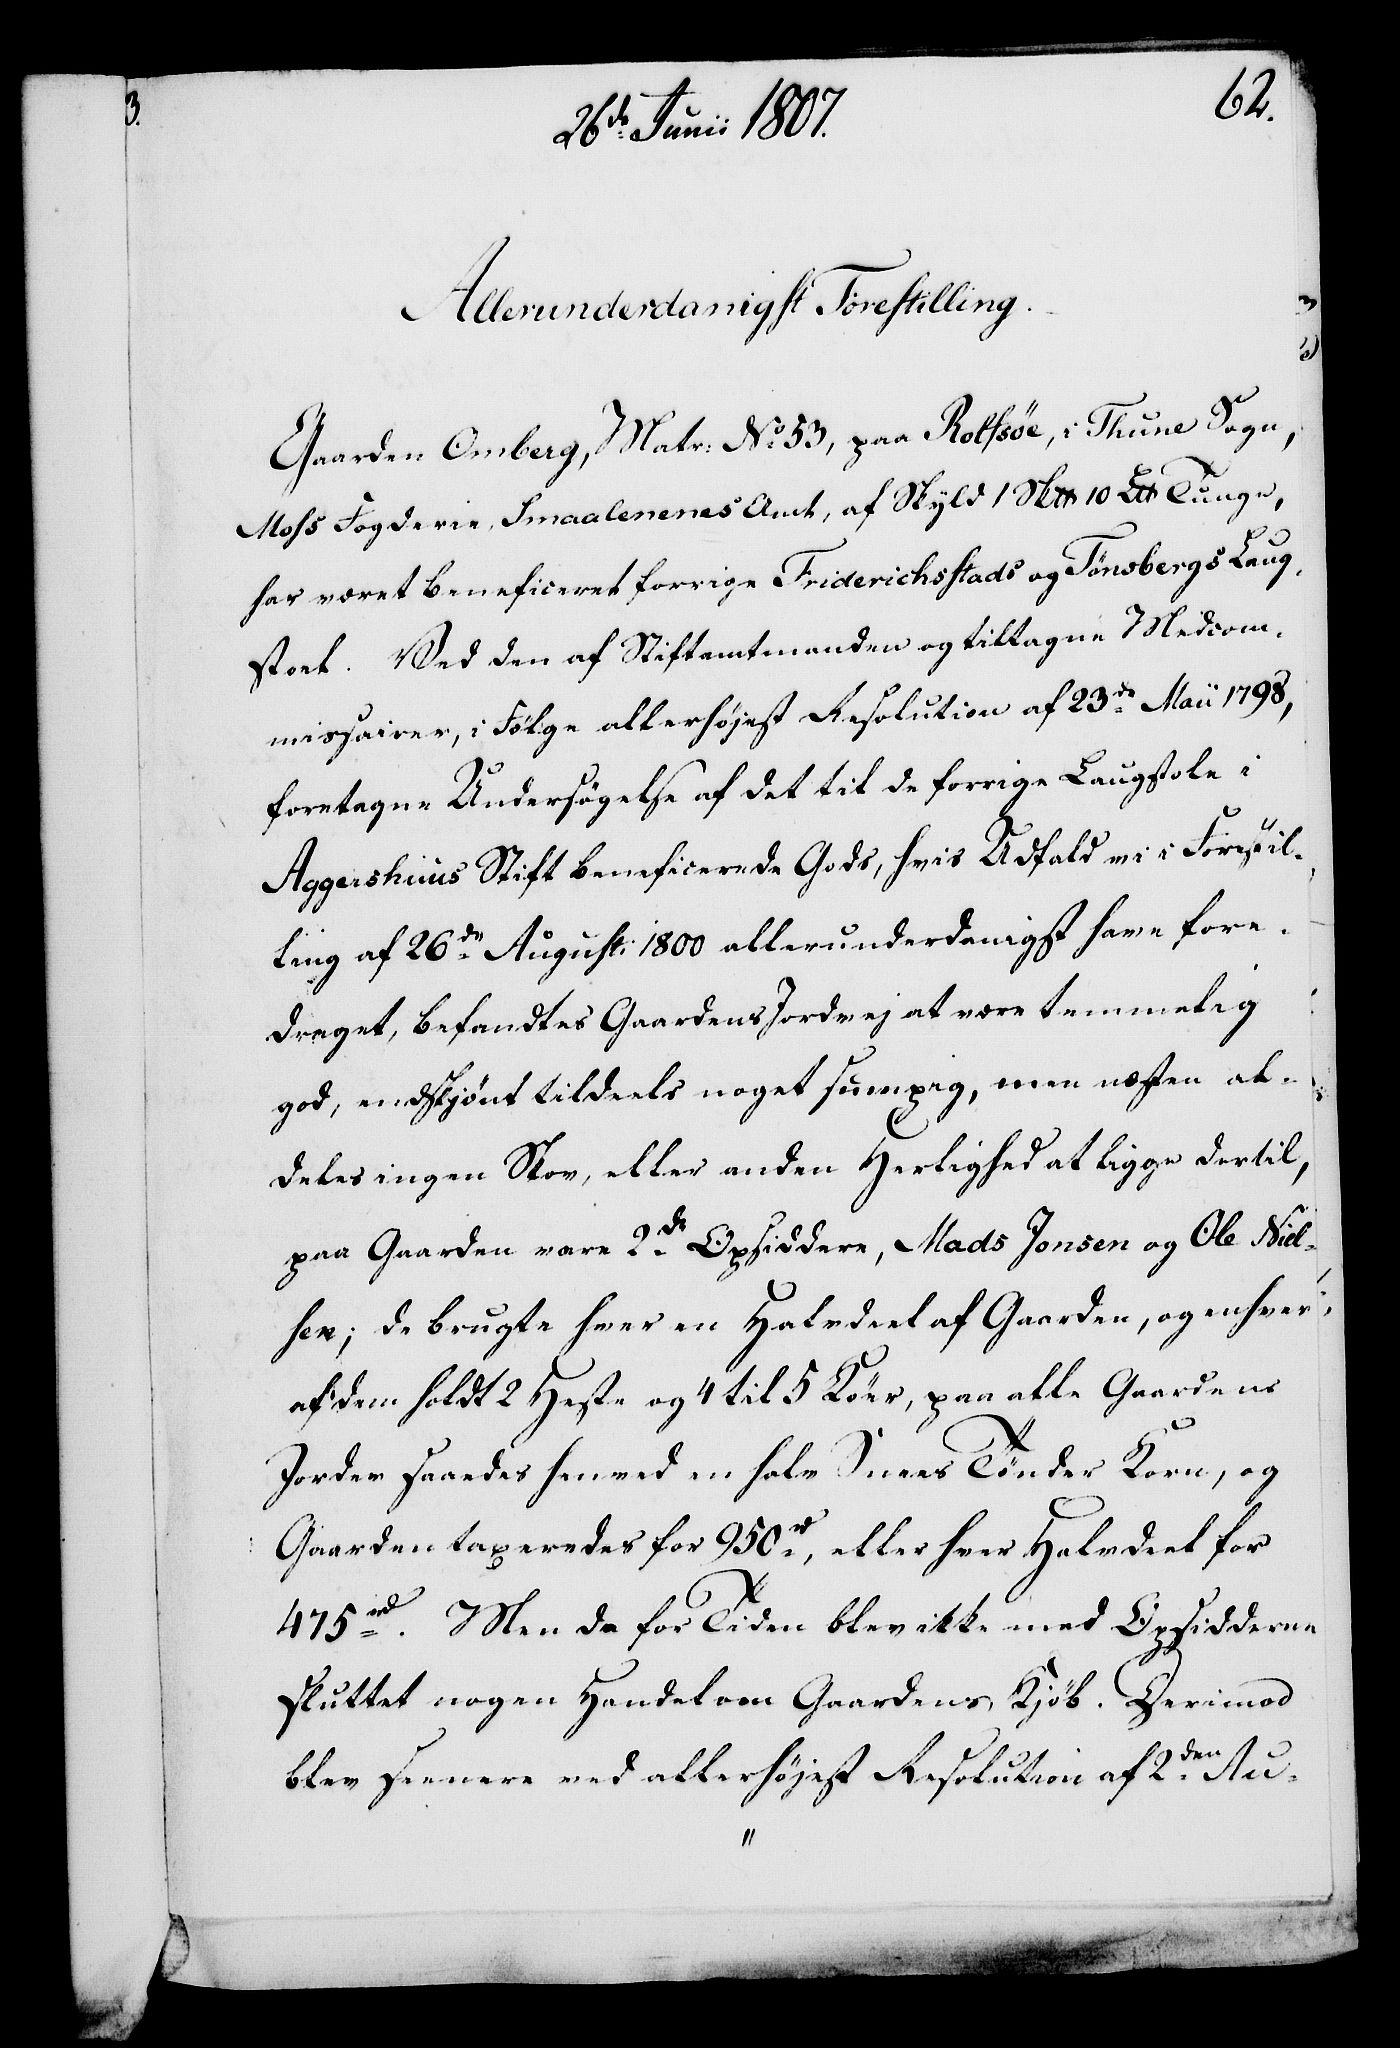 3.
26de Junii 1807.
62.
Allerunderdanigst Forestilling.
Gaarden Omberg, Matr: No 53, paa Rolfsöe, i Thune Sogn,
Moss Fogderie, Smaalenenes Amt, af Skyld 1 Sk℔ 10 L℔ Tunge,
har været beneficeret forrige Friderichsstads og Tönsbergs Laug-
stoel. Ved den af Stiftamtmanden og tiltagne Medcom-
missairer, i Fölge allerhöjest Resolution af 23de Maii 1798,
foretagne Undersögelse af det til de forrige Laugstole i
Aggershuus Stift beneficerede Gods, hvis Udfald vi i Forestil-
ling af 26de Augusti 1800 allerunderdanigst have fore-
draget, befandtes Gaardens Jordvej at være temmelig
god, endskjönt tildeels noget sumpig, men næsten al-
deles ingen Skov, eller anden Herlighed at ligge dertil,
paa Gaarden vare 2de Opsiddere, Mads Jonsen og Ole Niel-
sen; de brugte hver en Halvdeel af Gaarden, og enhver
af dem holdt 2 Heste og 4 til 5 Köer, paa alle Gaardens
Jorder saaedes henved en halv Snees Tönder Korn, og
Gaarden taxeredes for 950 rd, eller hver Halvdeel for
475 rd. Men da for Tiden blev ikke med Opsidderne
sluttet nogen Handel om Gaardens Kjöb. Derimod
blev seenere ved allerhöjest Resolution af 2den Au-
"